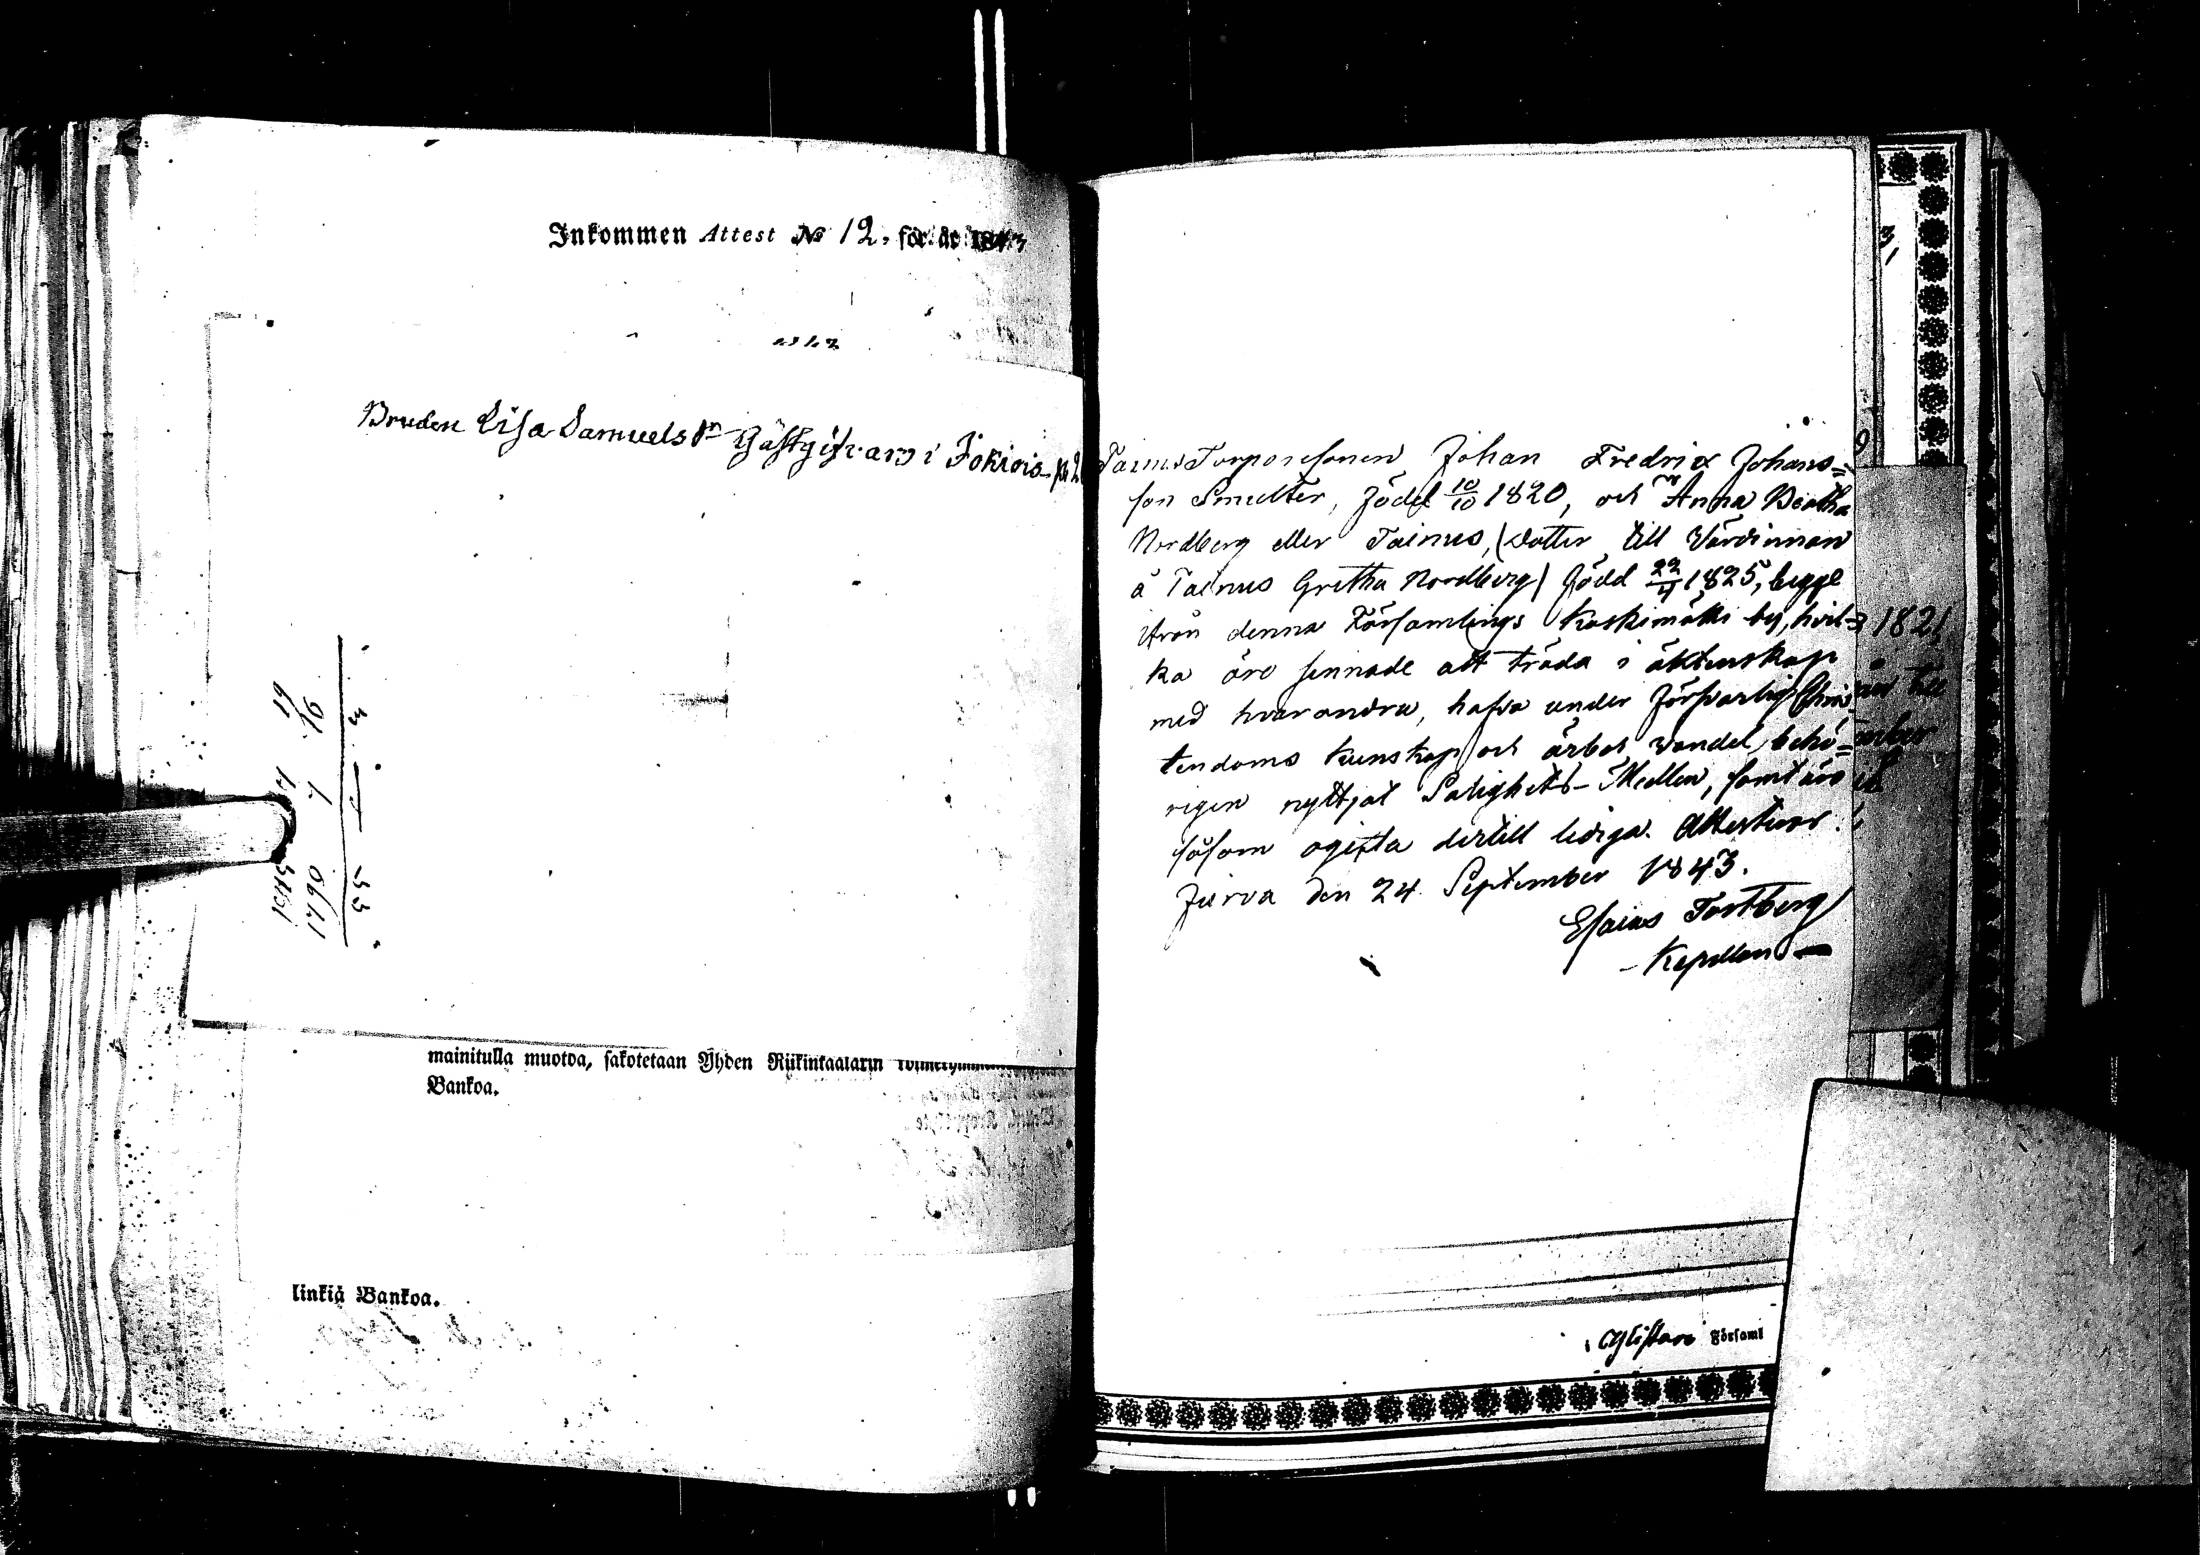 Inkommen Attest No 12. för år 1843
Bruden Lisa Samuels dr Gästgifvars i Jokiois
3 — 33
16 1 1190
mainitulla muotoa, sakotetaan Yhden Riikintaalarin
Bankoa.
linkiä Bankoa.
Tainus Torparesonen Johan Fredric Johans=
son Smulter, född 10/10 1820, och Anna Beatha
Nordberg eller Tainus, (dotter till Värdinnan
å Tainus Gretha Nordberg) född 22/4 1825, begge
ifrån denna Församlings Koskimäki by, hvil-
ka äro sinnade att träda i äktenskap
med hvarandra, hafva under försvarlig Chris-
tendoms kunskap och ärbar vandel, behö=
rigen nyttjat Salighets-Medlen, samt äro
såsom ogifta dertill lediga. Attesterar.
Jurva den 24 September 1843.
Esaias Tastberg
Kapellan
1821
Ylistaro Församl